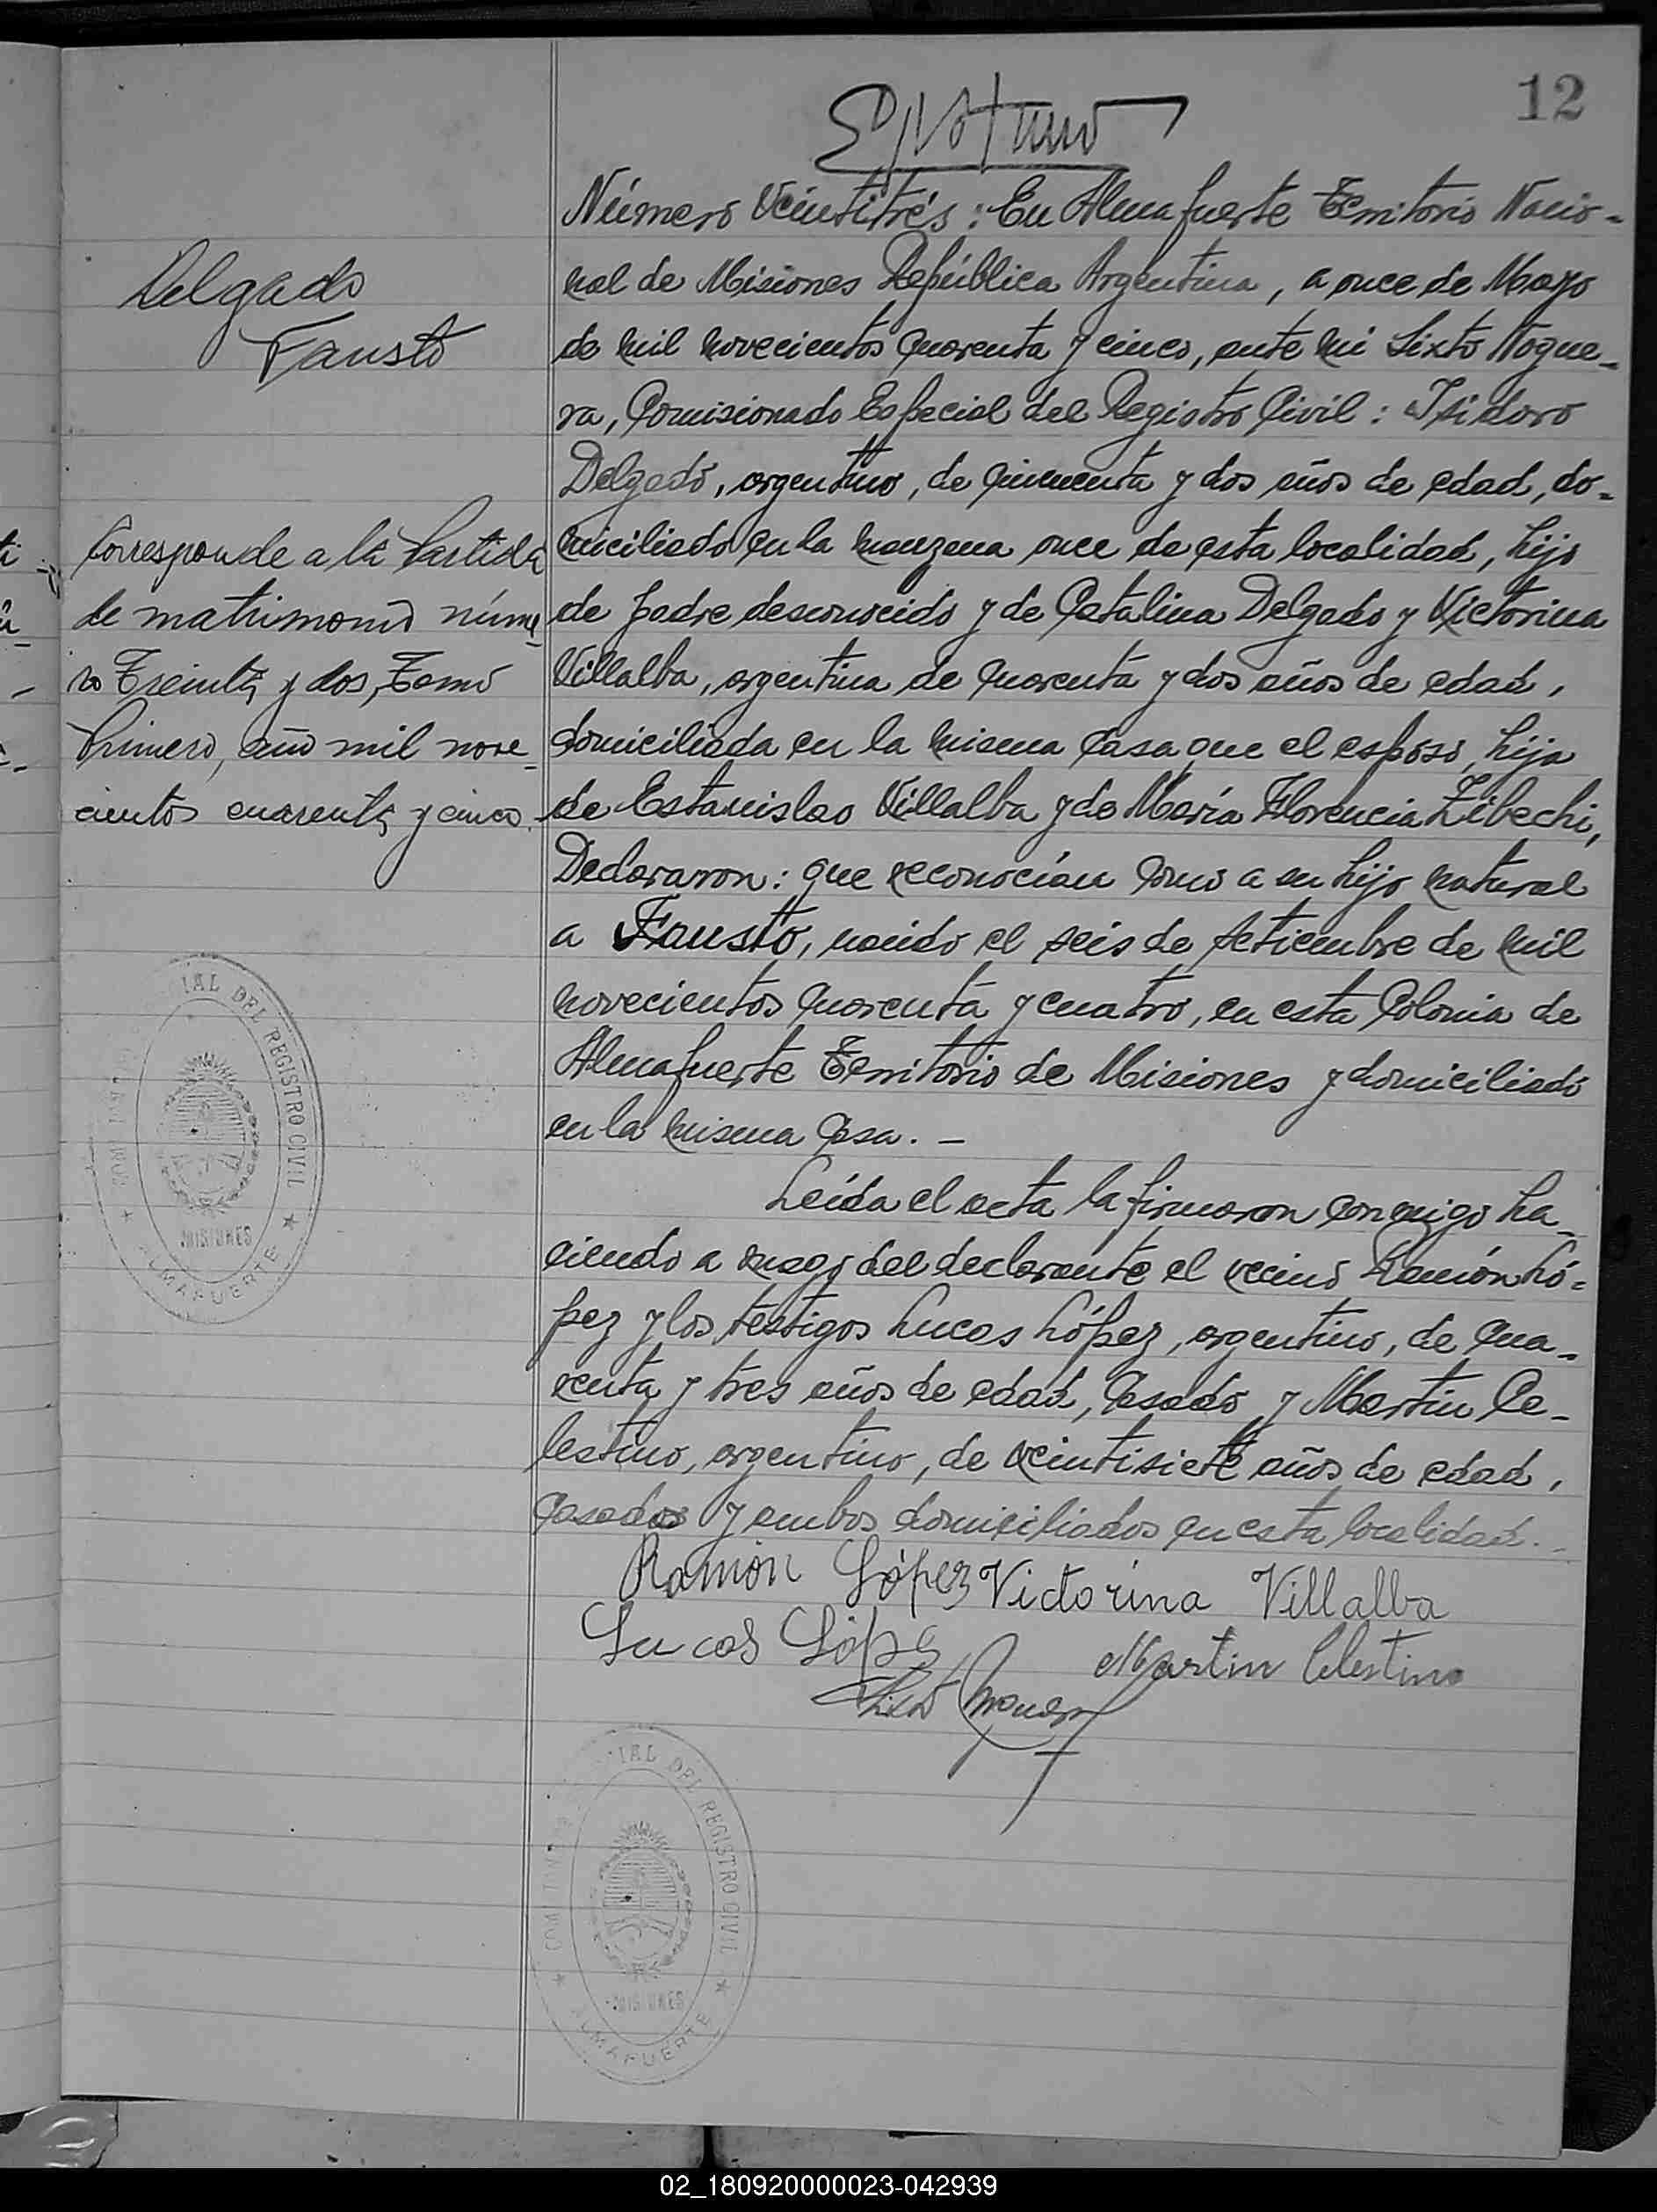 12
Número Veintitrés: En Almafuerte Territorio Nacio-
nal de Misiones República Argentina, a once de Mayo
de mil novecientos cuarenta y cinco, ante mi Sixto Nogue-
ra, Comisionado Especial del Registro Civil: Isidoro
Delgado, argentino, de cincuenta y dos años de edad, do-
miciliado en la manzana once de esta localidad, hijo
de padre desconocido y de Catalina Delgado y Victorina
Villalba, argentina de cuarenta y dos años de edad,
domiciliada en la misma casa que el esposo, hija
de Estanislao Villalba y de María Florencia Zibechi,
Declararon: que reconocían como a su hijo natural
a Fausto, nacido el seis de setiembre de mil
novecientos cuarenta y cuatro, en esta Colonia de
Almafuerte Territorio de Misiones y domiciliado
en la misma casa. -
Leída el acta la firmaron conmigo ha-
ciendo a ruego del declarante el vecino Ramón Ló-
pez y los testigos Lucas López, argentino, de cua-
renta y tres años de edad, casado y Martin Ce-
lestino, argentino, de veintisiete años de edad,
casados y ambos domiciliados en esta localidad.-
Ramón López Victorina Villalba
Lucas López
Martin Celestino
Delgado
Fausto
Corresponde a la Partida
de matrimonio núme-
ro Treinta y dos, Tomo
Primero, año mil nove-
cientos cuarenta y cinco.
DEL REGISTRO CIVIL
MISIONES
ALMAFUERTE
DEL REGISTRO CIVIL
MISIONES
ALMAFUERTE
02_180920000023-042939